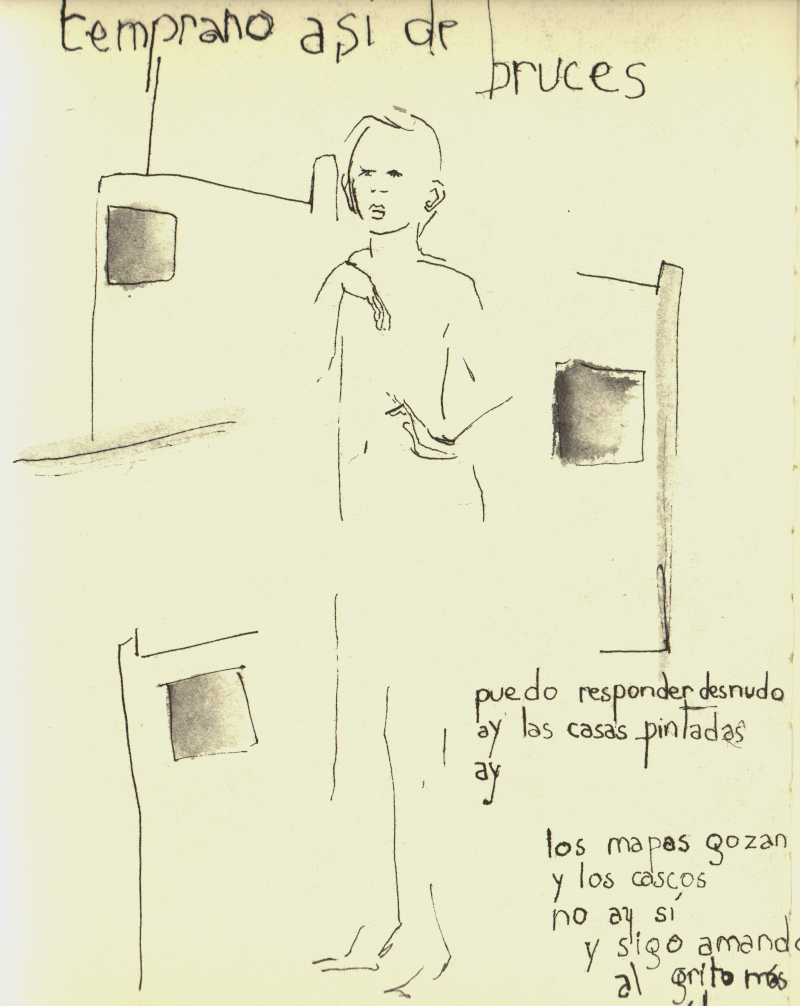 temprano asi de
bruces
puedo responder desnudo
ay las casas pintadas
ay
los mapas gozan
y los cascos
no ay sí
y sigo amando
al grito más